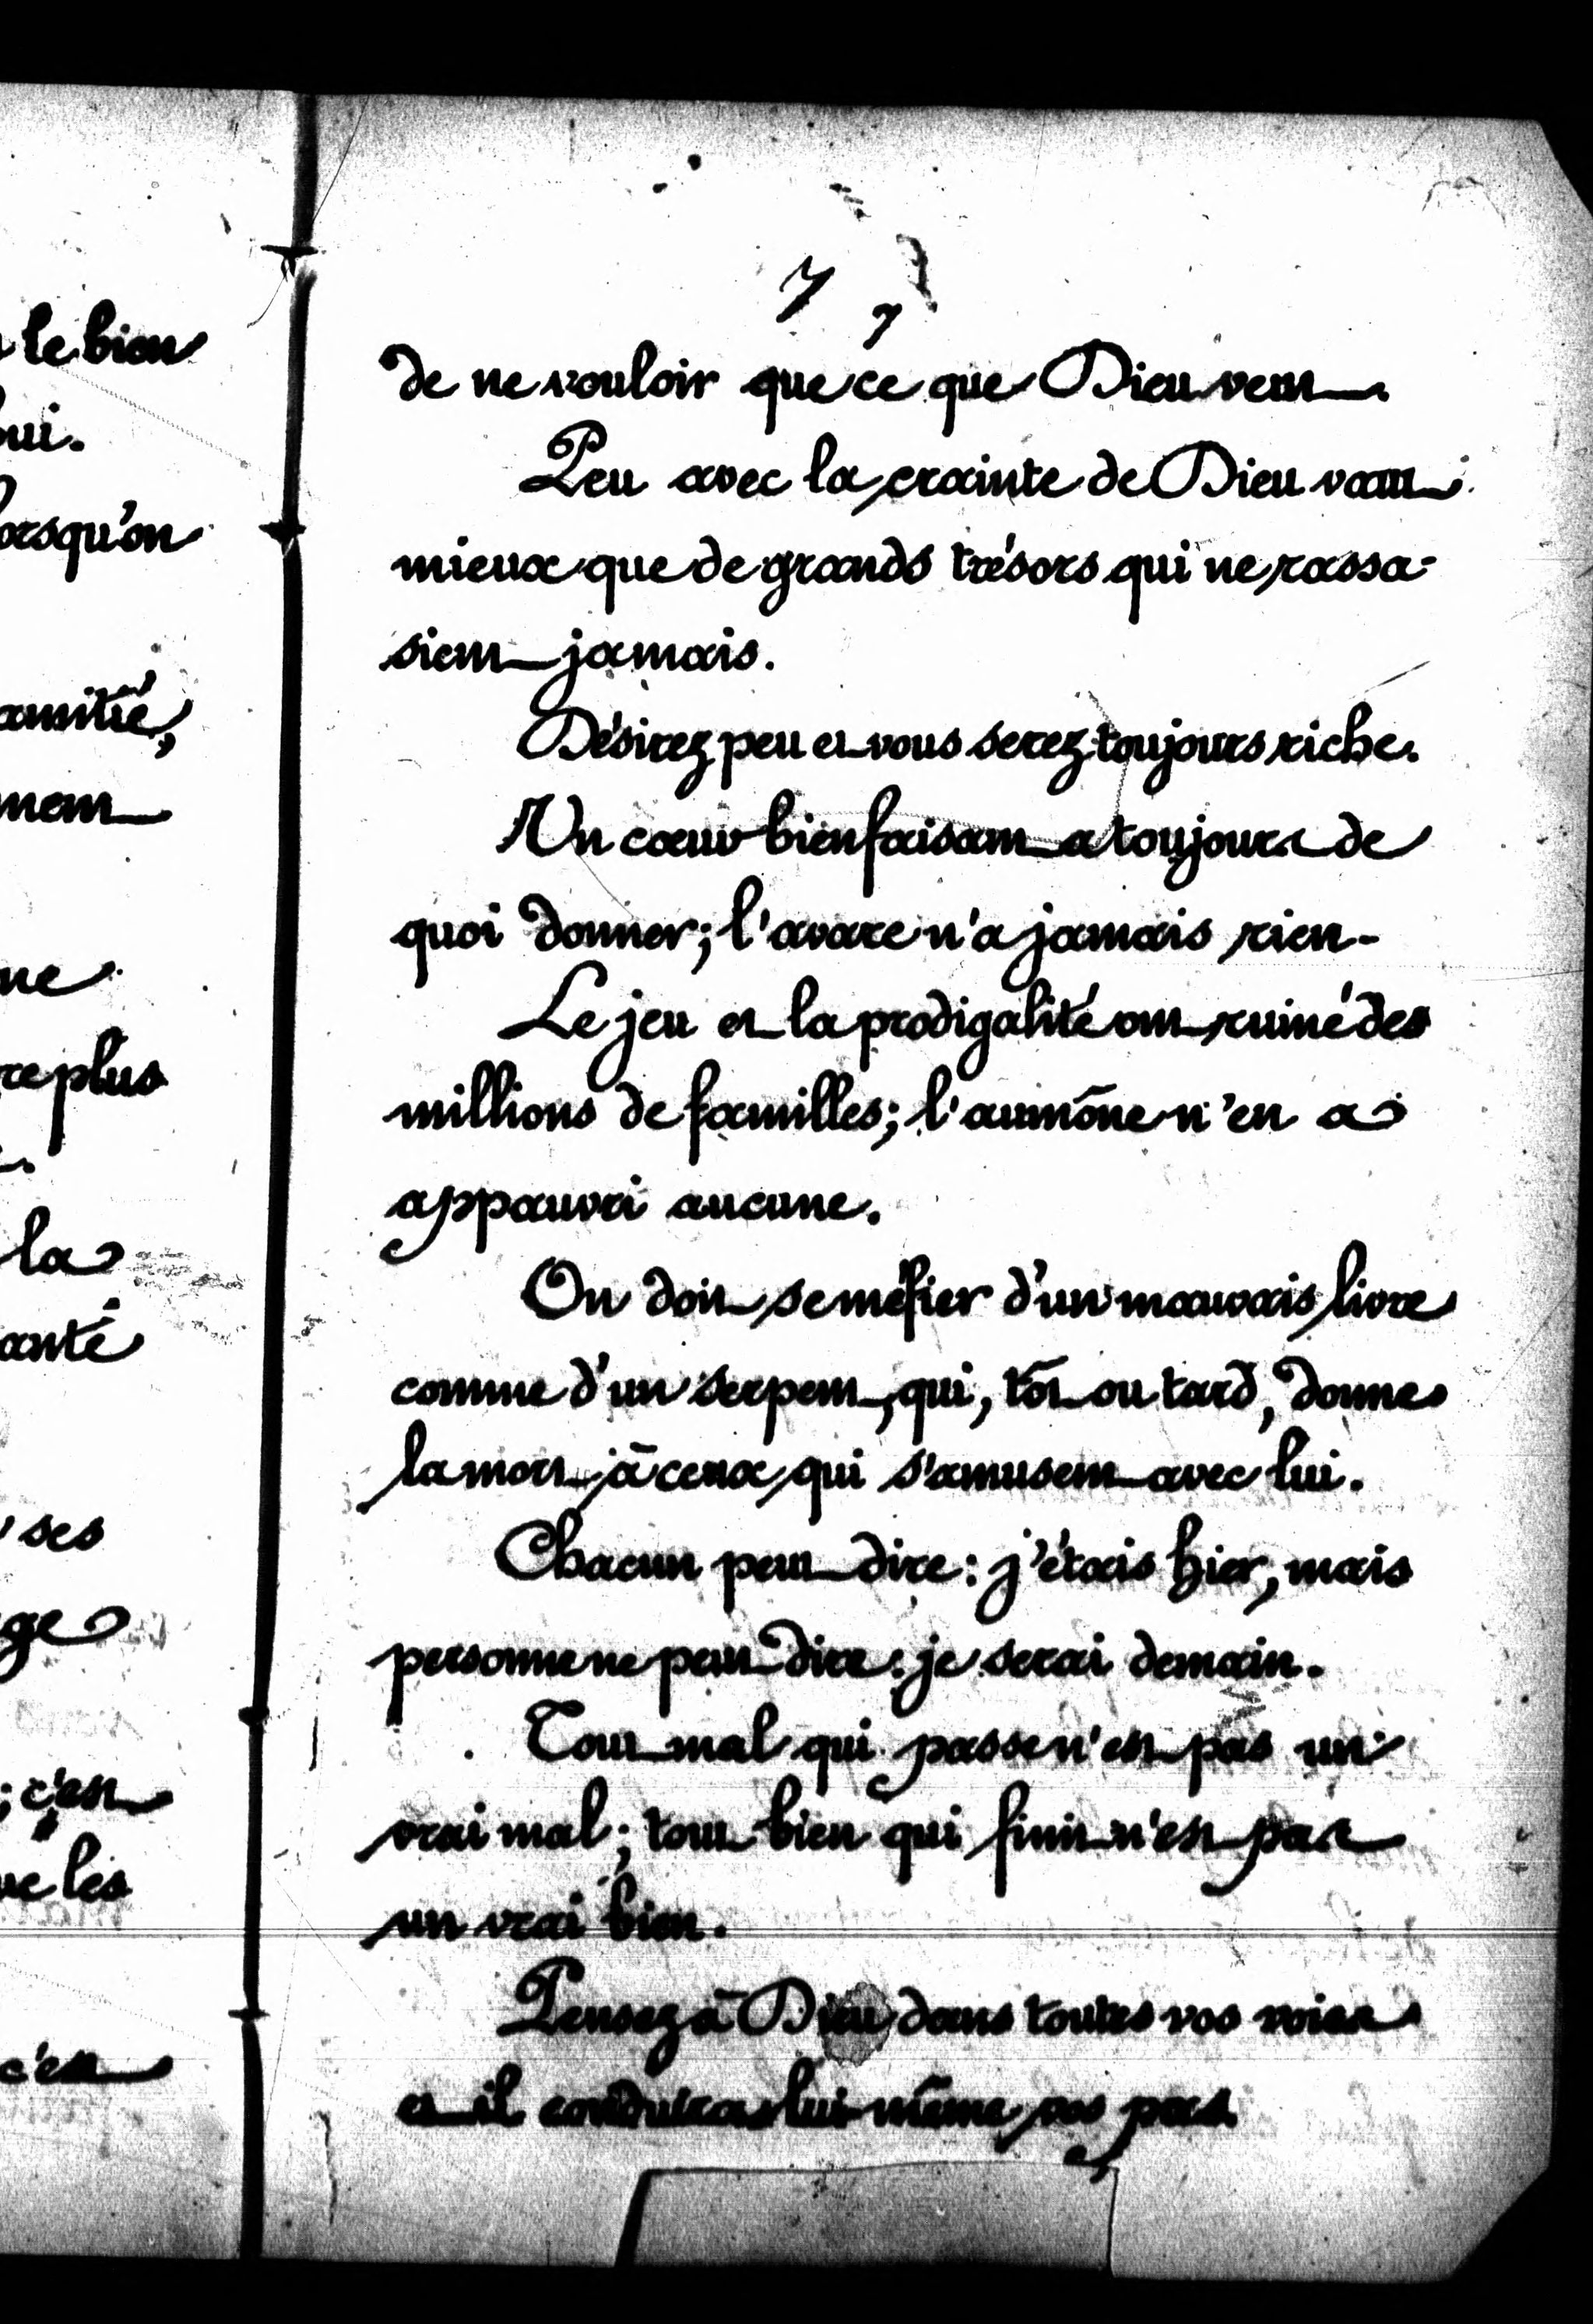 le bien
lui.
lorsqu'on
amitié,
ment
ne
re plus
la
santé
ses
ge
; c'est
ue les
c'est
7 7
de ne vouloir que ce que Dieu veut.
Peu avec la crainte de Dieu vaut
mieux que de grands trésors qui ne rassa-
sient jamais.
Désirez peu et vous serez toujours riche.
Un cœur bienfaisant a toujours de
quoi donner; l'avare n'a jamais rien.
Le jeu et la prodigalité ont ruiné des
millions de familles; l'aumône n'en a
appauvri aucune.
On doit se méfier d'un mauvais livre
comme d'un serpent, qui, tôt ou tard, donne
la mort à ceux qui s'amusent avec lui.
Chacun peut dire: j'étais hier, mais
personne ne peut dire: je serai demain.
Tout mal qui passe n'est pas un
vrai mal; tout bien qui finit n'est pas
un vrai bien.
Pensez à Dieu dans toutes vos voies
et il conduira lui-même vos pas